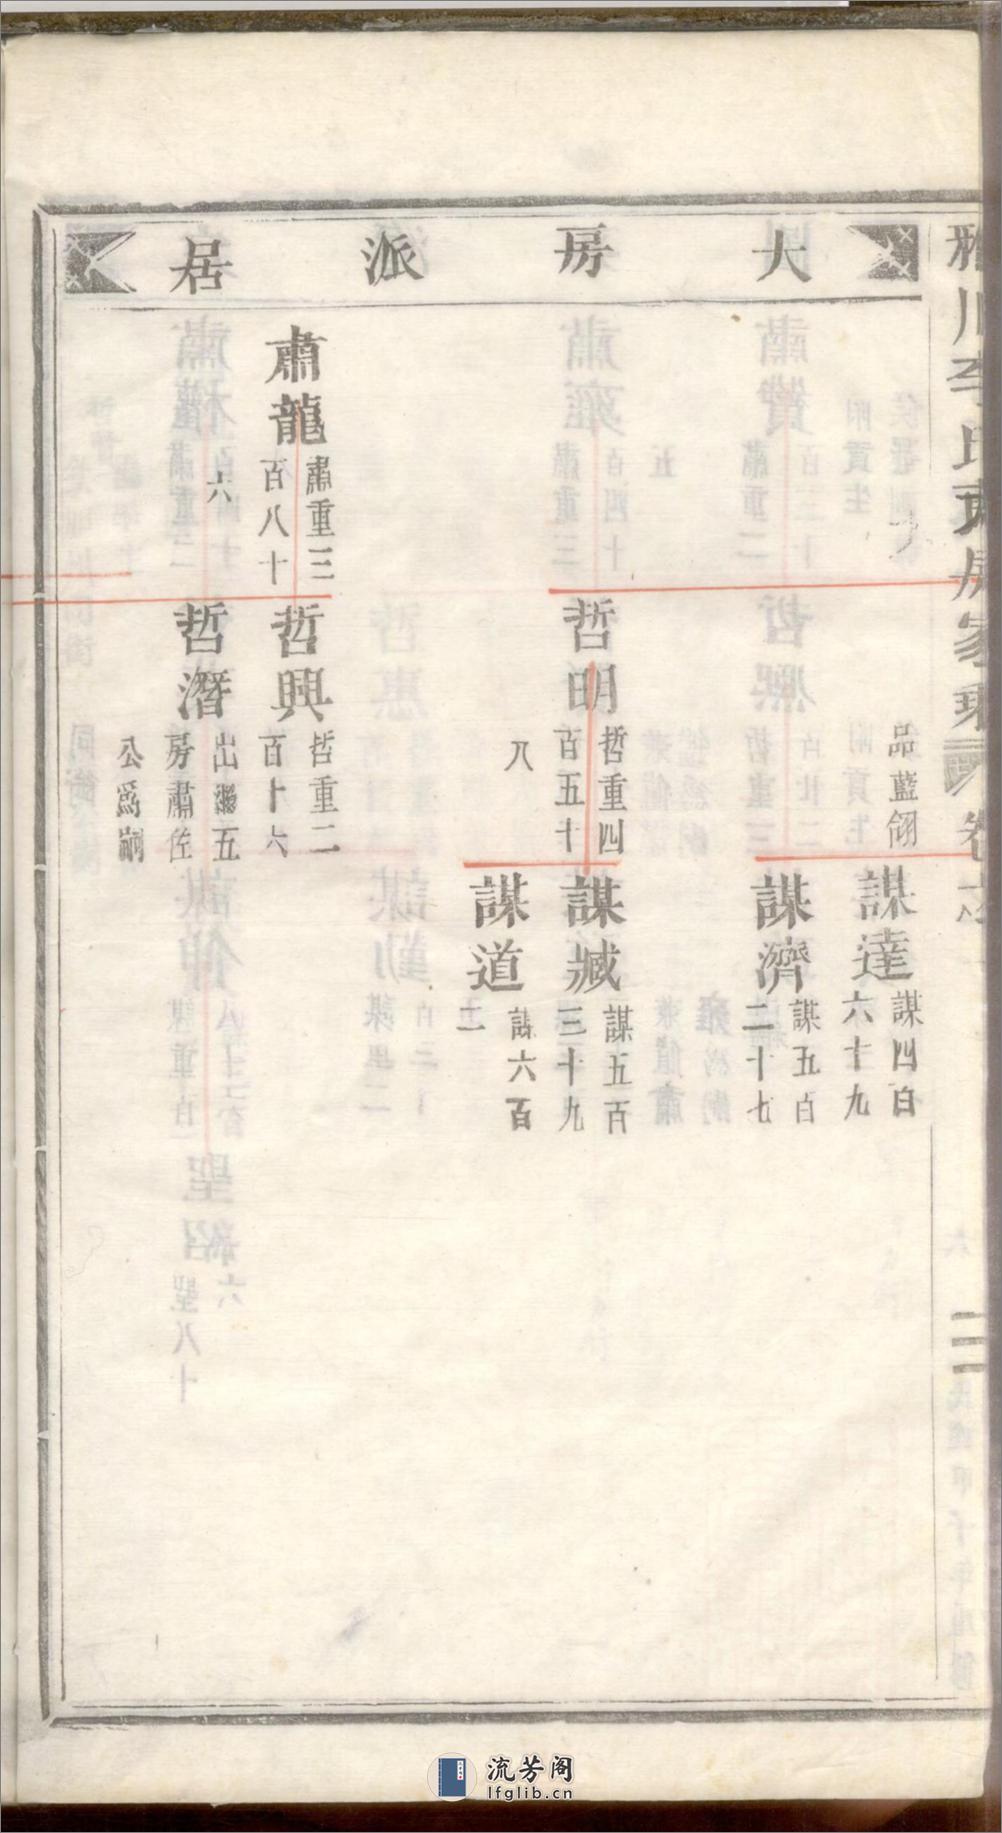 雅川李氏東房家乘
卷六
二
大房派居
品藍翎
謀達
謀四百
六十九
謀濟
謀五百
二十七
哲明
哲重四
百五十
八
謀臧
謀五百
三十九
謀道
謀六百
一
肅龍
肅重三
百八十
六
哲興
哲重二
百十六
哲潛
出繼五
房肅佐
公爲嗣
流芳阁
lfglib.cn